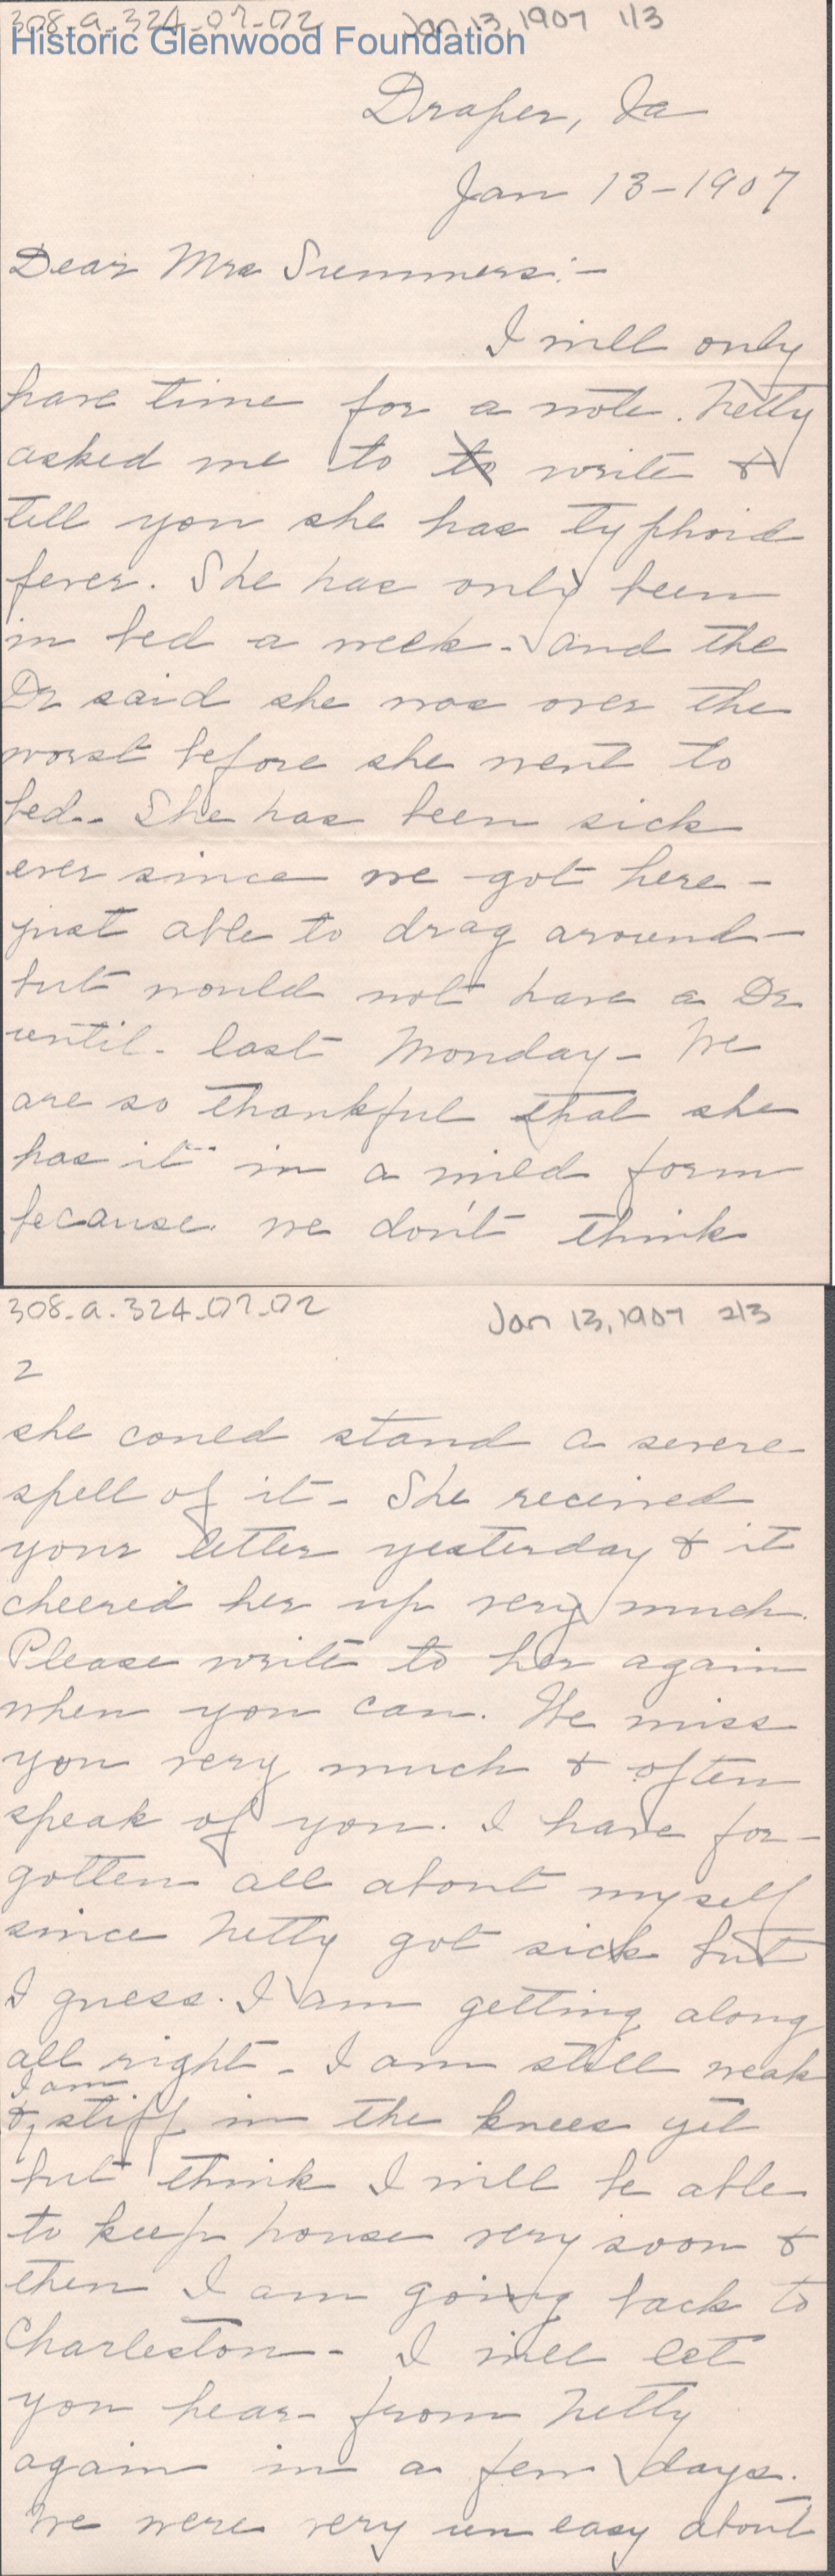 308-a-324-07-02 Jan 13, 1907 1/3
Historic Glenwood Foundation
Draper, Va
Jan 13-1907
Dear Mrs Summers:-
I will only
have time for a note. Netty
asked me to to write &
tell you she has typhoid
fever. She has only been
in bed a week - and the
Dr said she was over the
worst before she went to
bed. She has been sick
ever since we got here -
just able to drag around -
but would not have a Dr
until last Monday - We
are so thankful that she
has it in a mild form
because we don't think
308-a-324-07-02 Jan 13, 1907 2/3
2
she could stand a severe
spell of it - She received
your letter yesterday & it
cheered her up very much.
Please write to her again
when you can. We miss
you very much & often
speak of you. I have for-
gotten all about myself
since Netty got sick but
I guess I am getting along
all right - I am still weak
I am
& stiff in the knees yet
but think I will be able
to keep house very soon &
then I am going back to
Charleston - I will let
you hear from Netty
again in a few days.
We were very uneasy about